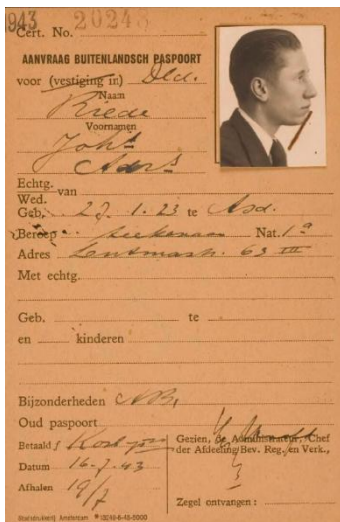 1943 20248
Cert. No.
AANVRAAG BUITENLANDSCH PASPOORT
voor (vestiging in) Dld.
Naam
Riede
Voornamen
Joh.s
Adr.s
Echtg.
Wed. van
Geb. 27. 1. 23 te Asd.
Beroep Nat. 1ª
Adres 63 III
Met echtg.
Geb. te
en kinderen
Bijzonderheden
Oud paspoort
Betaald f
Datum 16-7-43
Afhalen 19/7
Gezien, de Administrateur, Chef
der Afdeeling Bev. Reg. en Verk.,
Zegel ontvangen :
Stadsdrukkerij Amsterdam